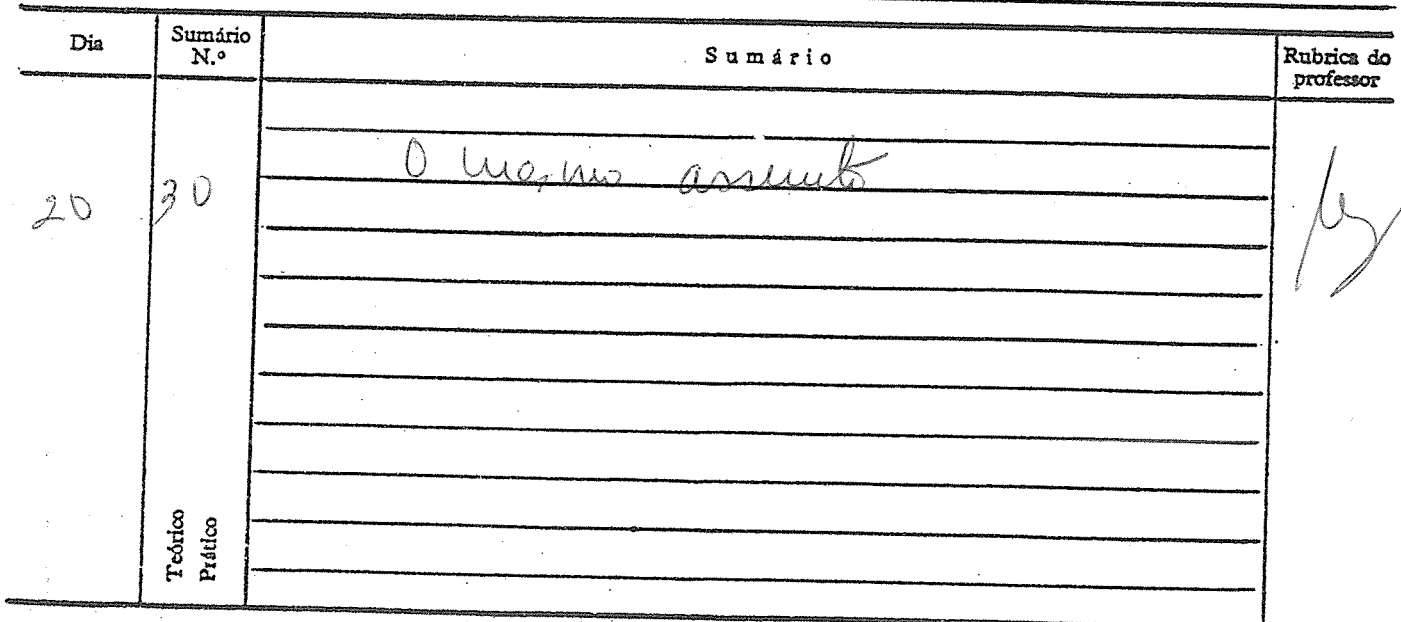 Dia
Sumário
N.º
Sumário
Rubrica do
professor
20
30
O mesmo assunto
Teórico
Prático